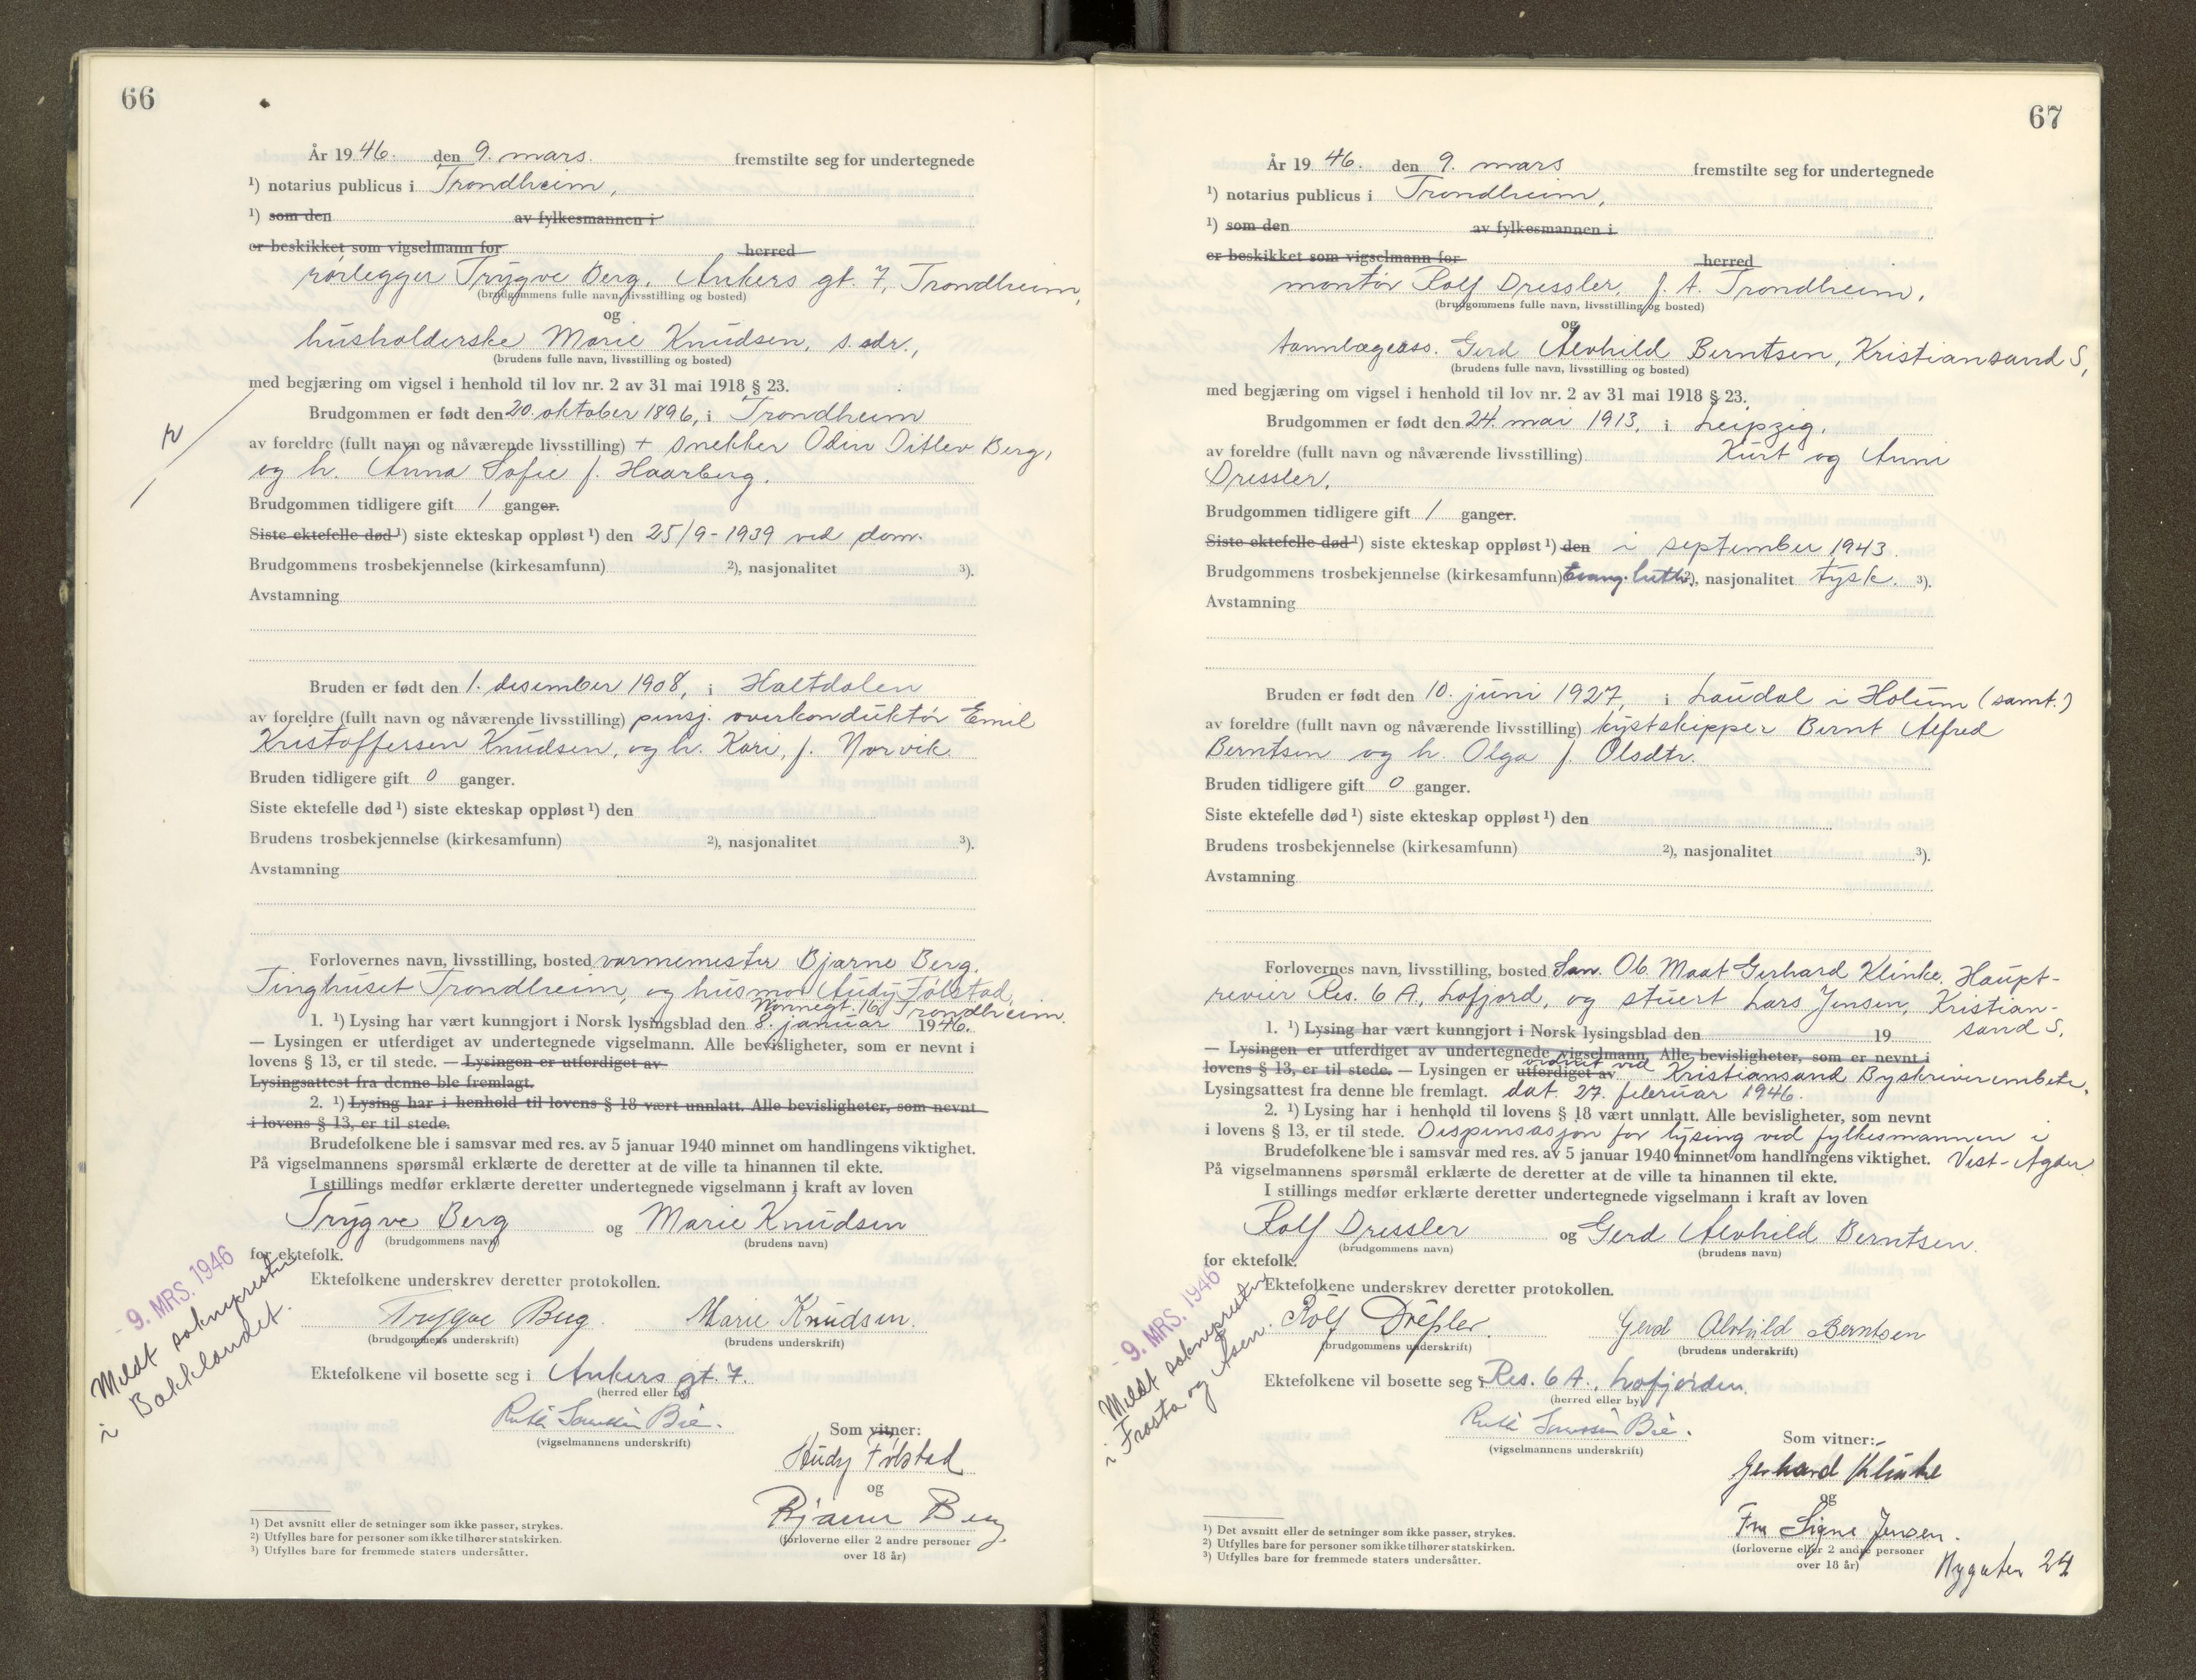 66
År 1946. den 9. mars. fremstilte seg for undertegnede
¹) notarius publicus i Trondheim,
¹) som den av fylkesmannen i
er beskikket som vigselmann for herred
rørlegger Trygve Berg, Ankers gt. 7, Trondheim,
(brudgommens fulle navn, livsstilling og bosted)
og
husholderske Marie Knudsen, s. adr.,
(brudens fulle navn, livsstilling og bosted)
med begjæring om vigsel i henhold til lov nr. 2 av 31 mai 1918 § 23.
Brudgommen er født den 20. oktober 1896, i Trondheim
av foreldre (fullt navn og nåværende livsstilling) + snekker Odin Ditlev Berg,
og h. Anna Sofie f. Haarberg.
Brudgommen tidligere gift 1 ganger.
Siste ektefelle død ¹) siste ekteskap oppløst ¹) den 25/9-1939 ved dom.
Brudgommens trosbekjennelse (kirkesamfunn) ²), nasjonalitet ³).
Avstamning
Bruden er født den 1. desember 1908, i Haltdalen
av foreldre (fullt navn og nåværende livsstilling) pensj. overkonduktør Emil
Kristoffersen Knudsen, og h. Kari, f. Norvik
Bruden tidligere gift 0 ganger.
Siste ektefelle død ¹) siste ekteskap oppløst ¹) den
Brudens trosbekjennelse (kirkesamfunn) ²), nasjonalitet ³).
Avstamning
Forlovernes navn, livsstilling, bosted varmemester Bjarne Berg,
Tinghuset Trondheim, og husmor Audy Følstad,
Nonnegt. 16, Trondheim.
1. ¹) Lysing har vært kunngjort i Norsk lysingsblad den 8. januar 1946.
— Lysingen er utferdiget av undertegnede vigselmann. Alle bevisligheter, som er nevnt i
lovens § 13, er til stede. — Lysingen er utferdiget av
Lysingsattest fra denne ble fremlagt.
2. ¹) Lysing har i henhold til lovens § 18 vært unnlatt. Alle bevisligheter, som nevnt
i lovens § 13, er til stede.
Brudefolkene ble i samsvar med res. av 5 januar 1940 minnet om handlingens viktighet.
På vigselmannens spørsmål erklærte de deretter at de ville ta hinannen til ekte.
I stillings medfør erklærte deretter undertegnede vigselmann i kraft av loven
Trygve Berg og Marie Knudsen
(brudgommens navn) (brudens navn)
for ektefolk.
Ektefolkene underskrev deretter protokollen.
Trygve Berg. Marie Knudsen.
(brudgommens underskrift) (brudens underskrift)
- 9. MRS. 1946
Meldt soknepresten
i Bakklandet.
Ektefolkene vil bosette seg i Ankers gt. 7.
(herred eller by)
(vigselmannens underskrift)
Som vitner:
Audy Følstad
og
Bjarne Berg
(forloverne eller 2 andre personer
over 18 år)
¹) Det avsnitt eller de setninger som ikke passer, strykes.
²) Utfylles bare for personer som ikke tilhører statskirken.
³) Utfylles bare for fremmede staters undersåtter.
67
År 1946. den 9. mars fremstilte seg for undertegnede
¹) notarius publicus i Trondheim,
¹) som den av fylkesmannen i
er beskikket som vigselmann for herred
montør Rolf Dressler, f. A. Trondheim,
(brudgommens fulle navn, livsstilling og bosted)
og
tannlægeass. Gerd Alvhild Berntsen, Kristiansand S,
(brudens fulle navn, livsstilling og bosted)
med begjæring om vigsel i henhold til lov nr. 2 av 31 mai 1918 § 23.
Brudgommen er født den 24. mai 1913, i Leipzig,
av foreldre (fullt navn og nåværende livsstilling) Kurt og Anni
Dressler.
Brudgommen tidligere gift 1 ganger.
Siste ektefelle død ¹) siste ekteskap oppløst ¹) den i september 1943.
Brudgommens trosbekjennelse (kirkesamfunn) Evang. luth. ²), nasjonalitet tysk. ³).
Avstamning
Bruden er født den 10. juni 1927, i Laudal i Holum (samt.)
av foreldre (fullt navn og nåværende livsstilling) kystskipper Bernt Alfred
Berntsen og h. Olga f. Olsdtr.
Bruden tidligere gift 0 ganger.
Siste ektefelle død ¹) siste ekteskap oppløst ¹) den
Brudens trosbekjennelse (kirkesamfunn) ²), nasjonalitet ³).
Avstamning
Forlovernes navn, livsstilling, bosted San. Ob. Maat Gerhard Klinke, Haupt-
revier Res. 6 A, Lofjord, og stuert Lars Jensen, Kristian-
sand S.
1. ¹) Lysing har vært kunngjort i Norsk lysingsblad den 19
— Lysingen er utferdiget av undertegnede vigselmann. Alle bevisligheter, som er nevnt i
lovens § 13, er til stede. — Lysingen er utferdiget av ordnet ved Kristiansand Byskriverembete.
Lysingsattest fra denne ble fremlagt. dat. 27. februar 1946.
2. ¹) Lysing har i henhold til lovens § 18 vært unnlatt. Alle bevisligheter, som nevnt
i lovens § 13, er til stede. Dispensasjon for lysing ved fylkesmannen i
Vest-Agder
Brudefolkene ble i samsvar med res. av 5 januar 1940 minnet om handlingens viktighet.
På vigselmannens spørsmål erklærte de deretter at de ville ta hinannen til ekte.
I stillings medfør erklærte deretter undertegnede vigselmann i kraft av loven
Rolf Dressler og Gerd Alvhild Berntsen.
(brudgommens navn) (brudens navn)
for ektefolk.
Ektefolkene underskrev deretter protokollen.
Rolf Dreßler. Gerd Alvhild Berntsen
(brudgommens underskrift) (brudens underskrift)
- 9. MRS. 1946
Meldt soknepresten
i Frosta og Åsen.
Ektefolkene vil bosette seg i Res. 6 A., Lofjorden.
(herred eller by)
(vigselmannens underskrift)
Som vitner:
Gerhard Klinke
og
Fru Signe Jensen.
(forloverne eller 2 andre personer
over 18 år)
Nygaten 24
¹) Det avsnitt eller de setninger som ikke passer, strykes.
²) Utfylles bare for personer som ikke tilhører statskirken.
³) Utfylles bare for fremmede staters undersåtter.